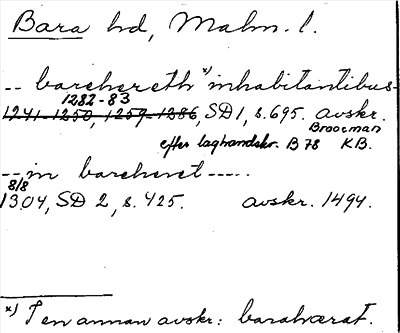 Bara hd, Malm. l.
-- barehereth *) inhabitantibus-
1282-83
1241-1250, 1259-1286, SD 1, s. 695. avskr.
Broocman
efter laghandskr. B 78 KB.
--- in bareheret -----
8/8
1304, SD 2, s. 425. avskr. 1494.
*) I en annan avskr.: barahærat.